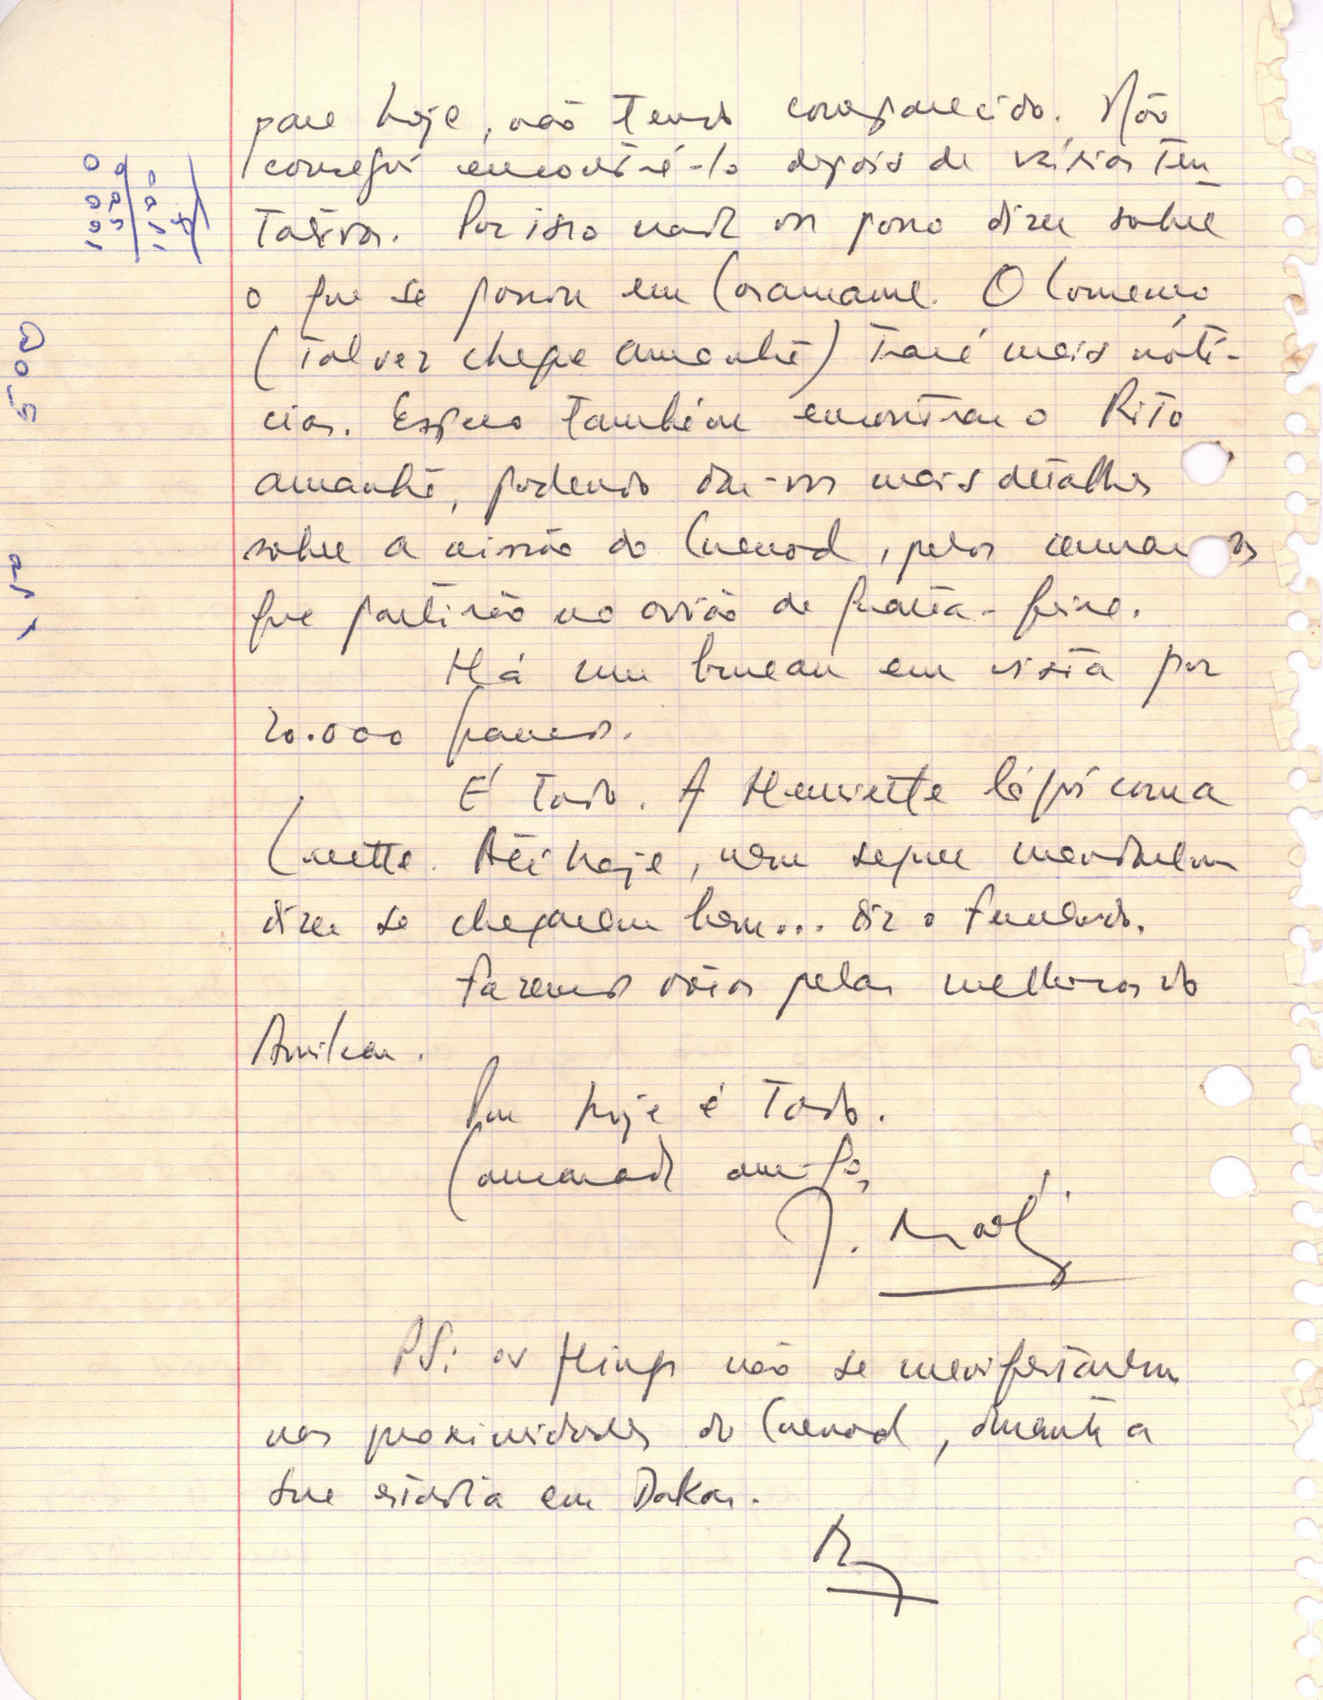 para hoje, não tendo comparecido. Não
consegui encontrá-lo depois de várias ten
tativas. Por isso nada vos posso dizer sobre
o que se passou em Casamance. O Lourenço
(talvez chegue amanhã) trará mais notí-
cias. Espero também encontrar o Pito
amanhã, podendo dar-vos mais detalhes
sobre a missão do Cuenod, pelos camaradas
que partirão no avião de quarta-feira.
Há um bureau em vista por
20.000 francos.
É tudo. A Henriette lá foi com a
Cuette. Até hoje, nem sequer mandaram
dizer se chegaram bem... diz o Fernando.
Fazemos votos pelas melhoras do
Amílcar.
Por hoje é tudo.
Camarada amigo,
J.
PS: os Hings não se manifestaram
nas proximidades do Cuenod, durante a
sua estadia em Dakar.
1000
500
500
150